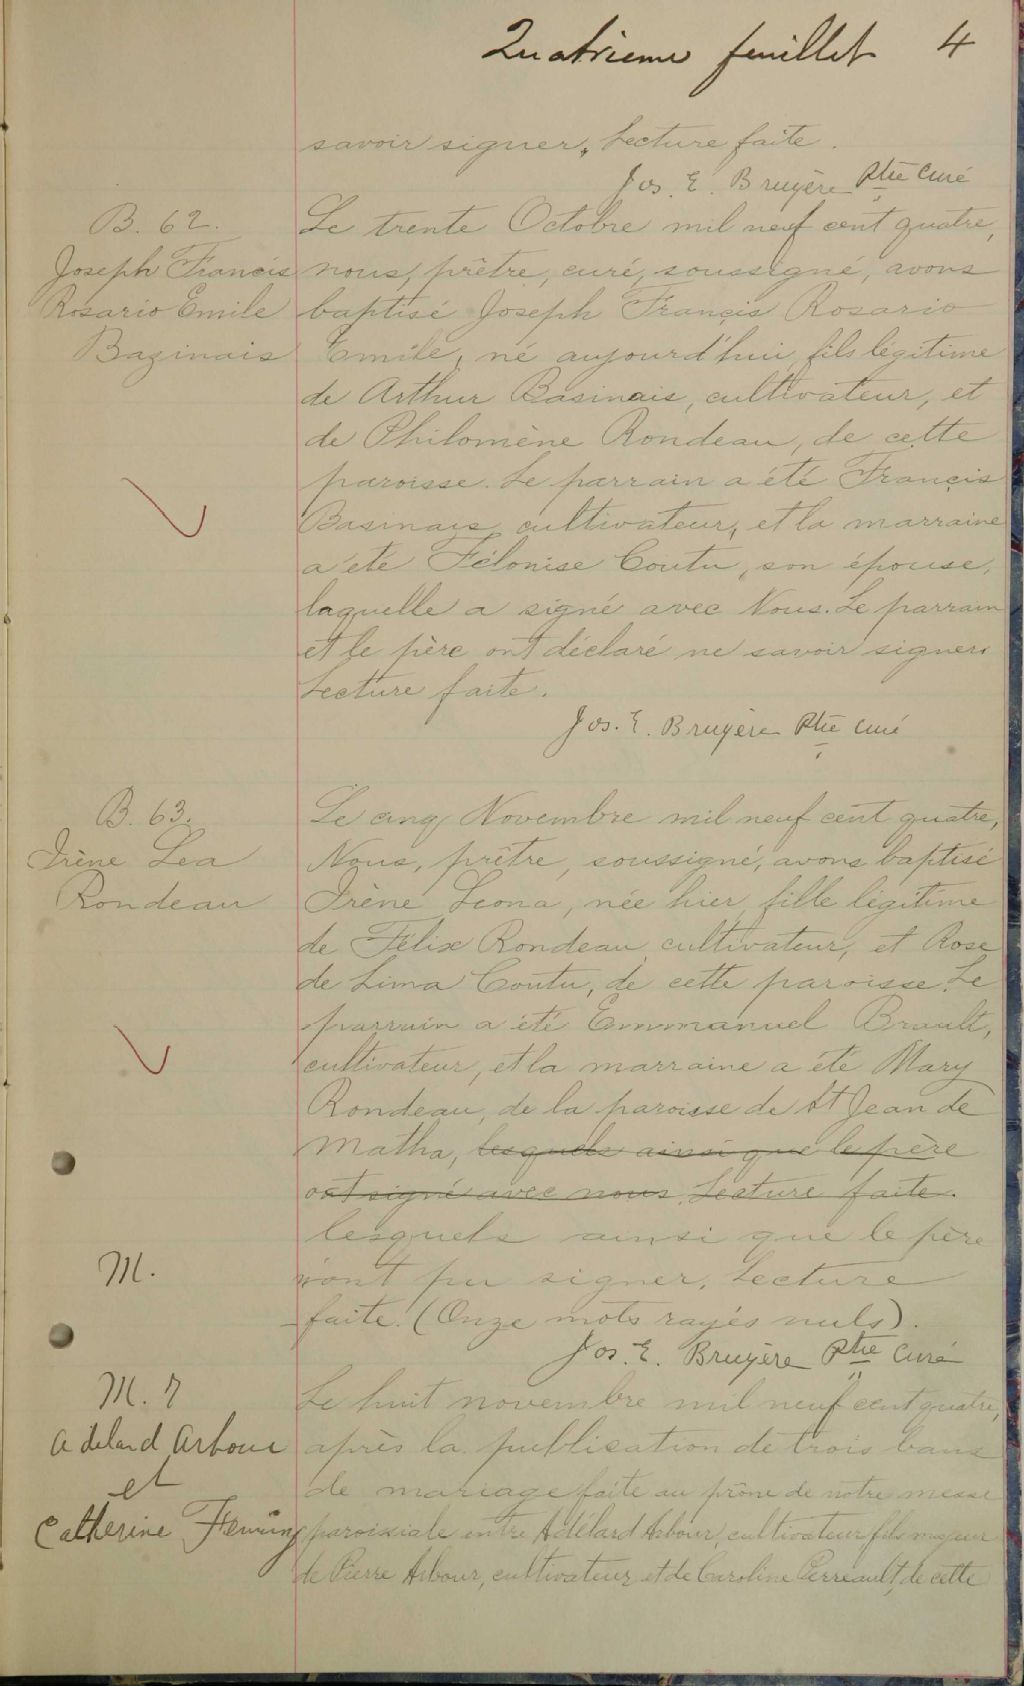 Quatrieme feuillet 4
savoir signer, Lecture faite.
Jos. E. Bruyère Ptre Curé
B. 62.
Joseph Francis
Rosario Emile
Bazinais
Le trente Octobre mil neuf cent quatre,
nous, prêtre, curé, soussigné, avons
baptisé Joseph Francis Rosario
Emile, né aujourd'hui, fils légitime
de Arthur Basinais, cultivateur, et
de Philomène Rondeau, de cette
paroisse. Le parrain a été Francis
Basinais cultivateur, et la marraine
a été Félonise Coutu, son épouse,
laquelle a signé avec Nous. Le parrain
et le père ont déclaré ne savoir signer.
Lecture faite.
Jos. E. Bruyère Ptre curé
B. 63.
Irène Lea
Rondeau
Le cinq Novembre mil neuf cent quatre,
Nous, prêtre, soussigné, avons baptisé
Irène Leona, née hier, fille légitime
de Félix Rondeau, cultivateur, et Rose
de Lima Coutu, de cette paroisse. Le
parrain a été Emmmanuel Brault,
cultivateur, et la marraine a été Mary
Rondeau, de la paroisse de St Jean de
Matha, lesquels ainsi que le père
ont signé avec nous. Lecture faite.
lesquels ainsi que le père
n'ont pu signer. Lecture
faite. (Onze mots rayés nuls).
Jos. E. Bruyère Ptre Curé
M.
M. 7
Adelard Arbour
et
Catherine Fleming
Le huit novembre mil neuf cent quatre,
après la publication de trois bans
de mariage faite au prône de notre messe
paroissiale entre Adélard Arbour, cultivateur, fils majeur
de Pierre Arbour, cultivateur, et de Caroline Perreault, de cette